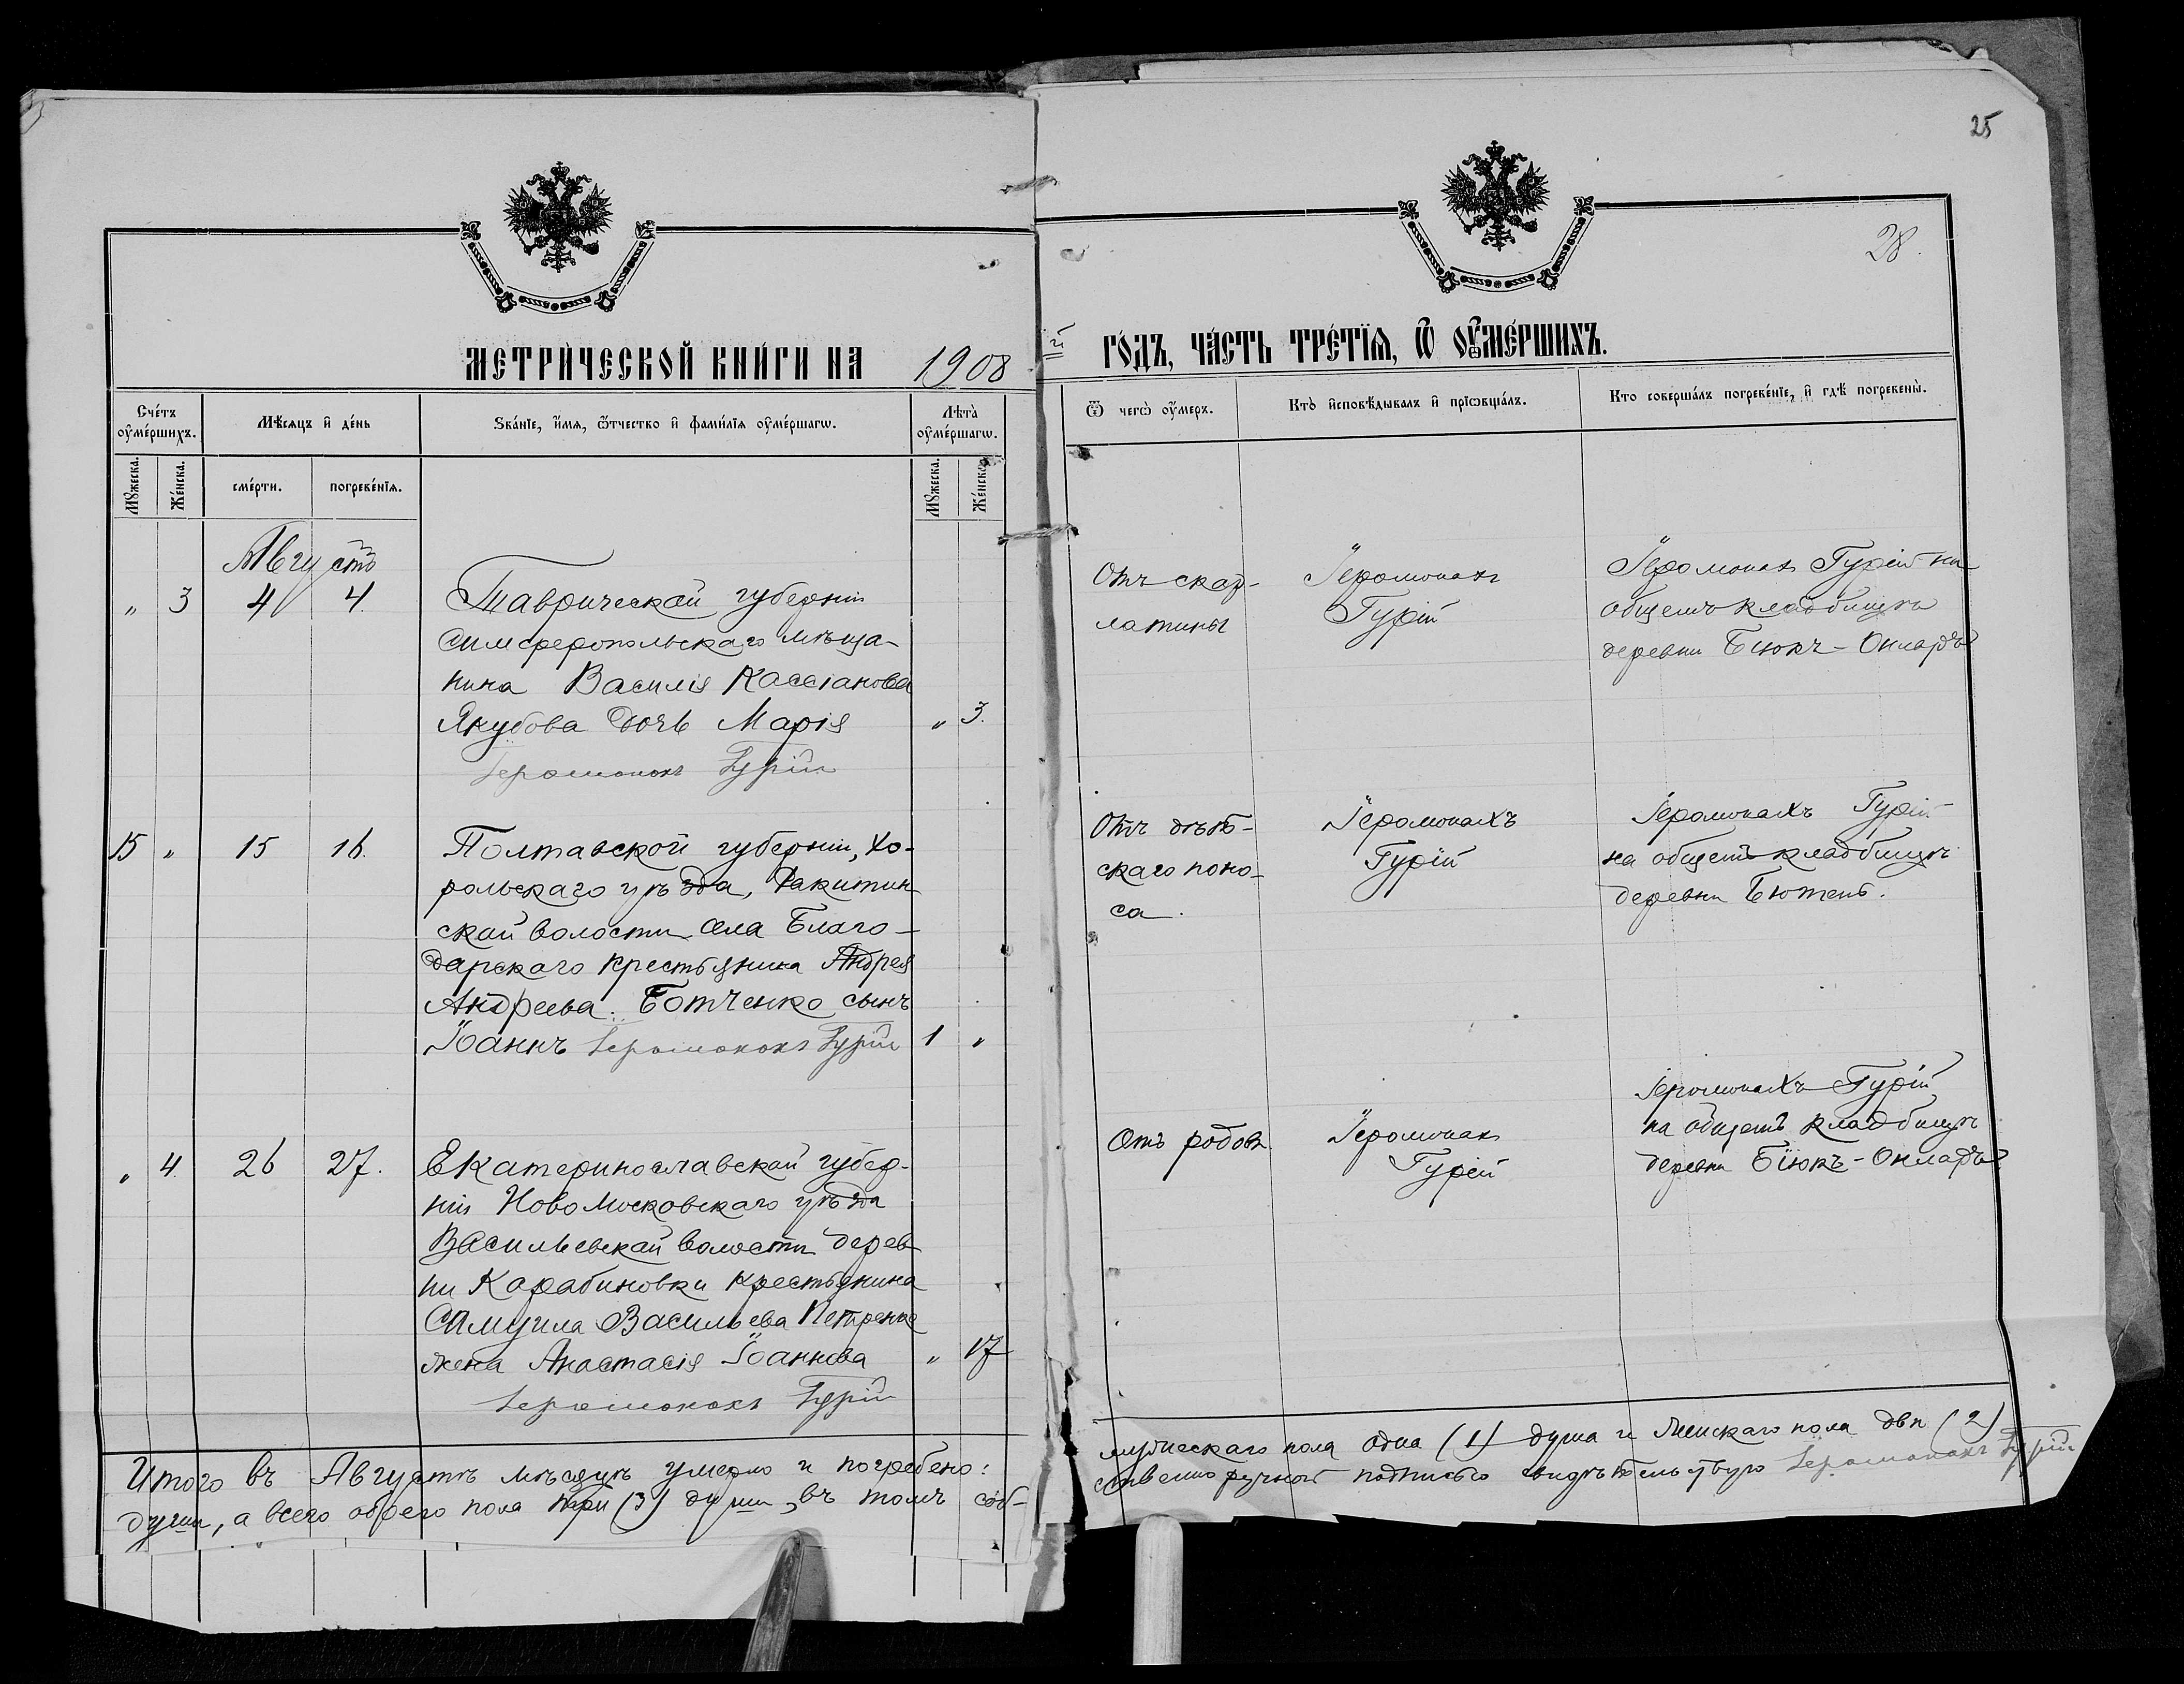 25
28.
МЕТРИ́ЧЕСКОЙ КНИ́ГИ НА 1908 й ГО́ДЪ, ЧА́СТЬ ТРЕ́ТЇѦ, Ѿ ОУ҆МЕ́РШИХЪ.
Сче́тъ оу҆ме́ршихъ.
Мѣ́сяцъ и҆ де́нь
Зва́нїе, и҆́мя, ѻ҆́тчество и҆ фами́лїя оу҆ме́ршагѡ.
Лѣ́та оу҆ме́ршагѡ.
Ѿ чегѡ̀ оу҆́меръ.
Кто̀ и҆сповѣ́дывалъ и҆ прїѡбща́лъ.
Кто соверша́лъ погребе́нїе, и҆ гдѣ̀ погребены̀.
Мꙋжеска.
Же́нска.
сме́рти.
погребе́нїя.
Мꙋжеска.
Же́нска.
Августъ
„ 3 4 4
Таврической губерніи
симферопольскаго мѣща-
нина Василія Кассіанова
Якубова дочь Марія „ 3.
Іеромонахъ Гурій
Отъ скар-
латины
Іеромонахъ
Гурій
Іеромонахъ Гурій на
общемъ кладбищѣ
деревни Біюкъ-Онларъ
15 „ 15 16.
Полтавской губерніи, Хо-
рольскаго уѣзда, Ракитин-
ской волости села Благо-
дарскаго крестьянина Андрея
Андреева Ботченко сынъ
Іоаннъ Іеромонахъ Гурій 1 „
Отъ дѣт-
скаго поно-
са.
Іеромонахъ
Гурій
Іеромонахъ Гурій
на общемъ кладбищѣ
деревни Бютень.
„ 4. 26 27.
Екатеринославской губер-
ніи Новомосковскаго уѣзда
Васильевской волости дерев-
ни Карабиновки крестьянина
Самуила Васильева Петренко
жена Анастасія Іоаннова „ 17
Іеромонахъ Гурій
Отъ родовъ.
Іеромонахъ
Гурій
Іеромонахъ Гурій
на общемъ кладбищѣ
деревни Біюкъ-Онларъ
Итого въ Августѣ мѣсяцѣ умерло и погребено: мужескаго пола одна (1) душа и женскаго пола двѣ (2)
души, а всего обоего пола три (3) души, въ томъ соб- ственноручной подписью свидѣтельствую Іеромонахъ Гурій